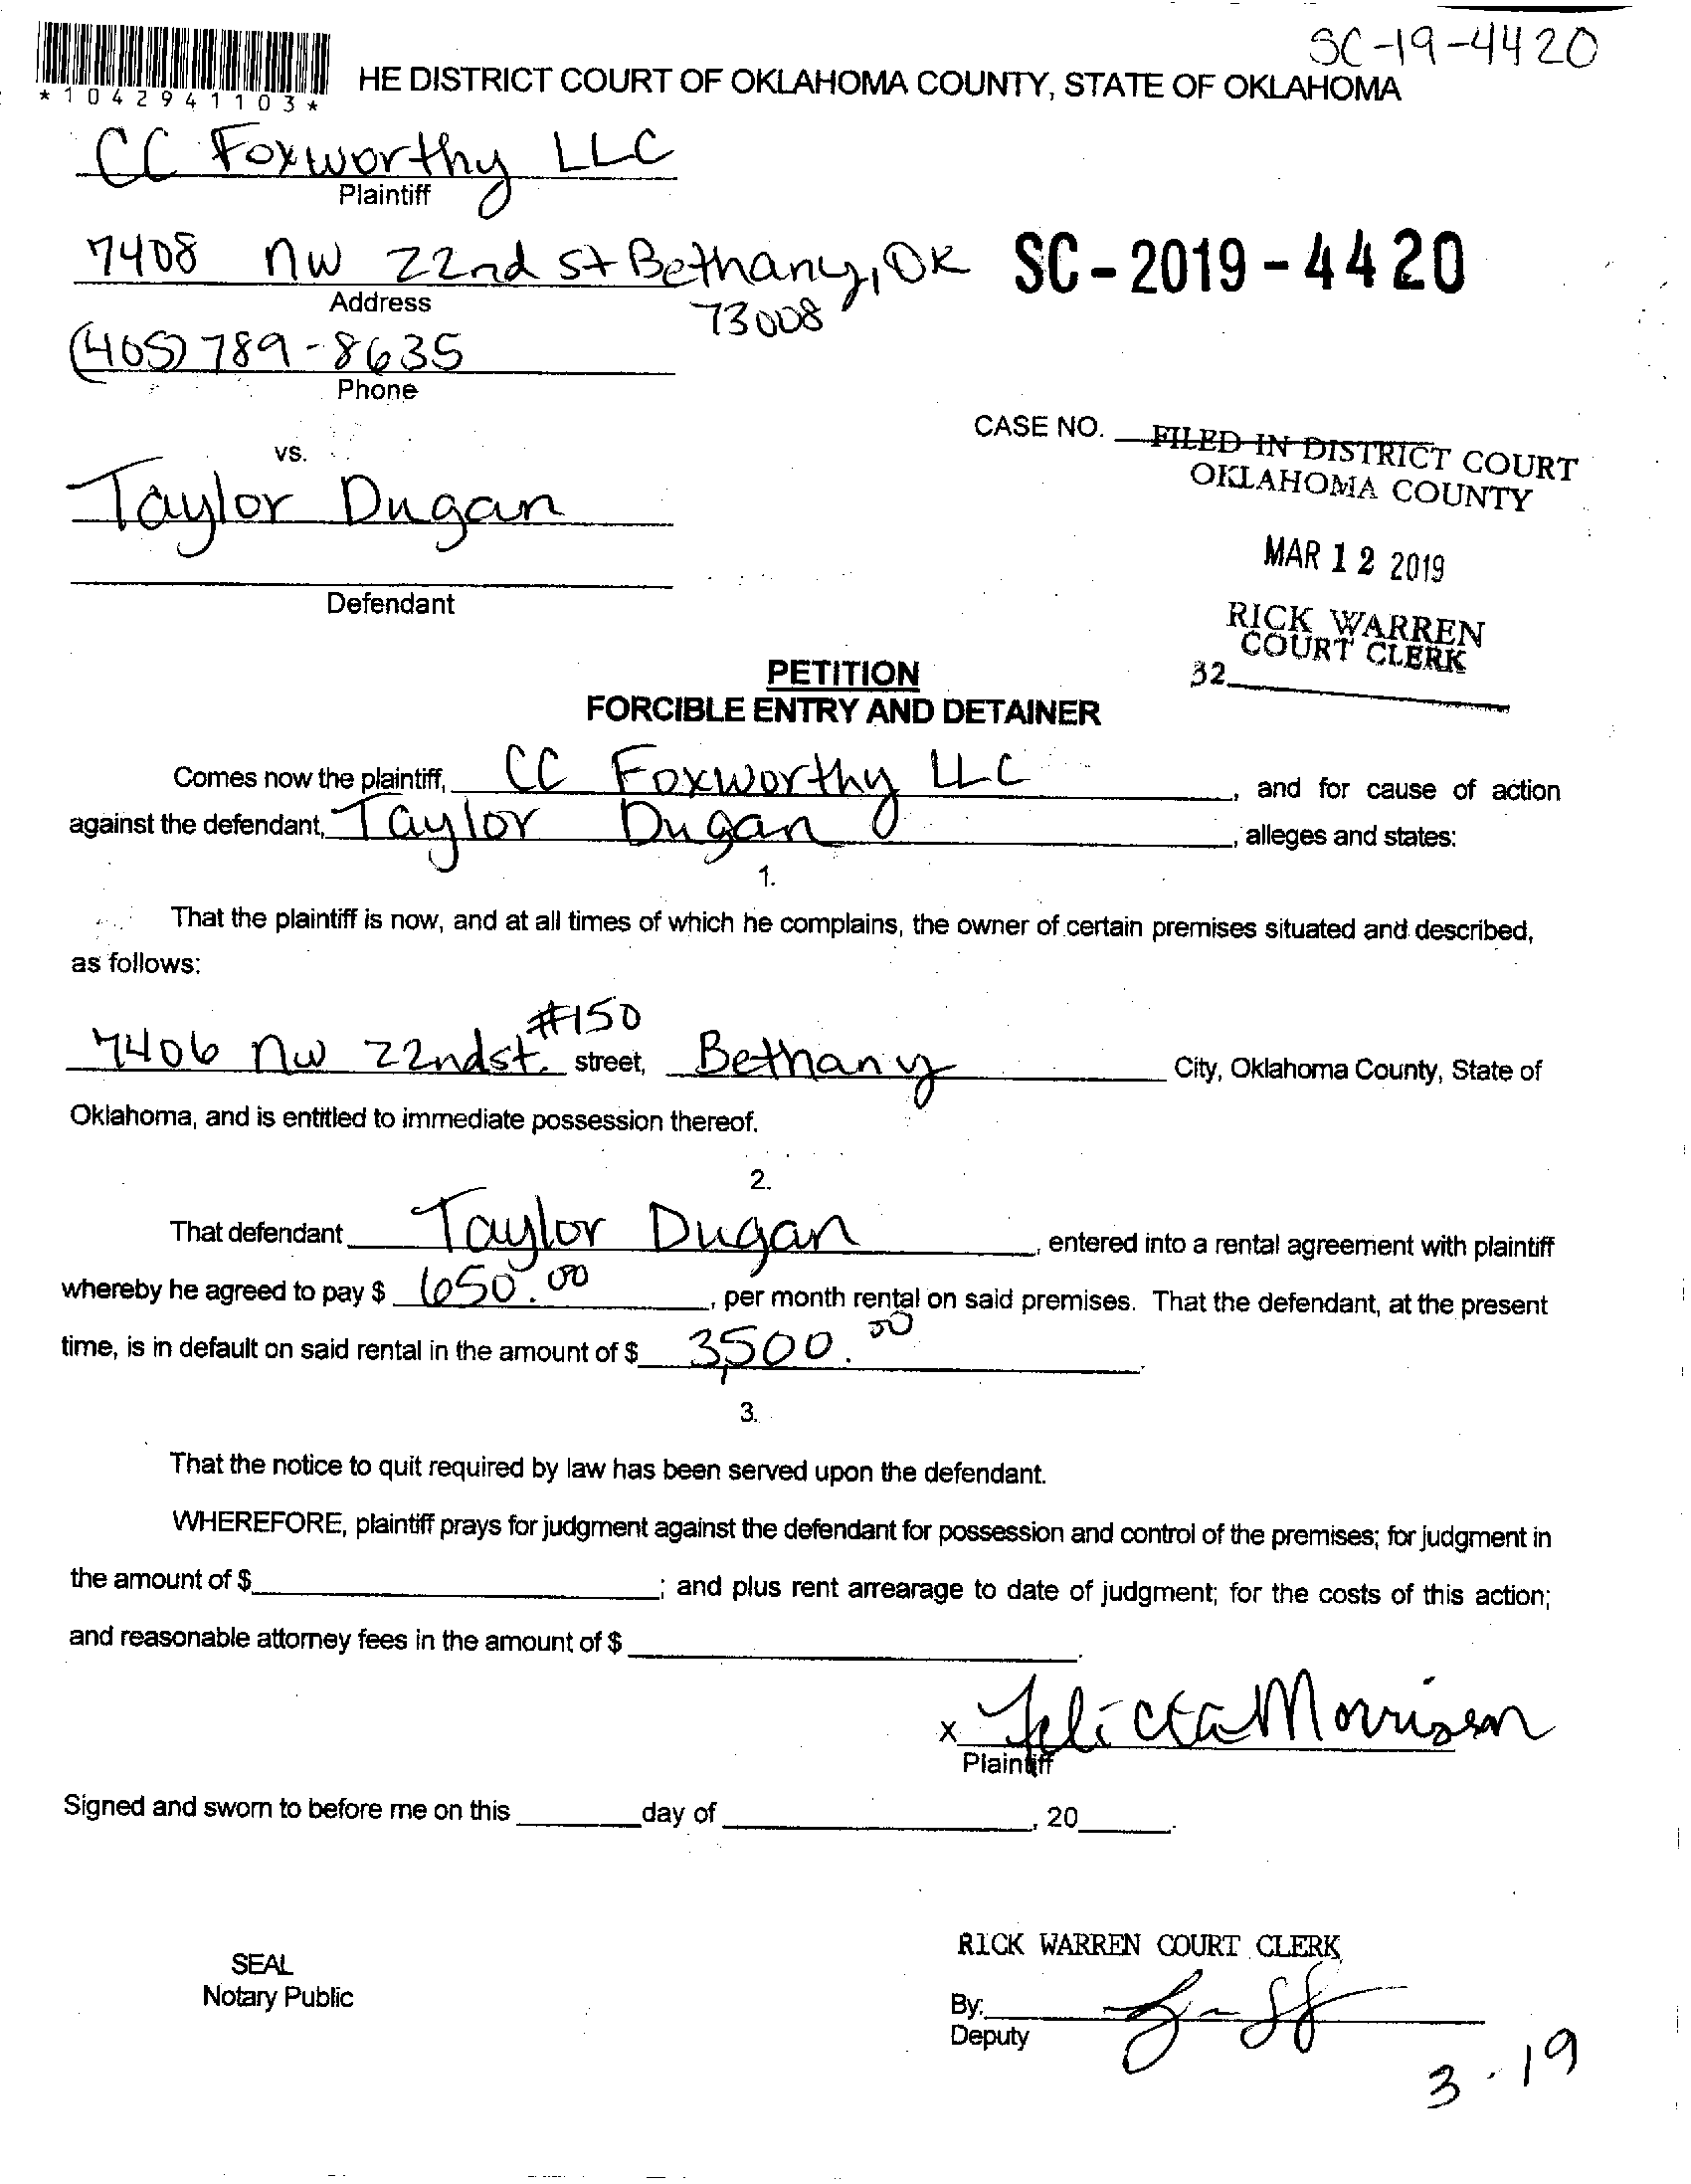 SC-19-4420
*1042941103*
HE DISTRICT COURT OF OKLAHOMA COUNTY, STATE OF OKLAHOMA
CC Foxworthy LLC
Plaintiff
7408 NW 22nd st Bethany, OK
73008
SC-2019-4420
Address
(405) 789-8635
Phone
CASE NO.
FILED IN DISTRICT COURT
OKLAHOMA COUNTY
vs.
Taylor Dugan
MAR 12 2019
Defendant
RICK WARREN
COURT CLERK
32
PETITION
FORCIBLE ENTRY AND DETAINER
Comes now the plaintiff, CC Foxworthy LLC, and for cause of action
against the defendant, Taylor Dugan, alleges and states:
1.
That the plaintiff is now, and at all times of which he complains, the owner of certain premises situated and described,
as follows:
#150
7406 NW 22nd st. street, Bethany City, Oklahoma County, State of
Oklahoma, and is entitled to immediate possession thereof.
2.
That defendant Taylor Dugan, entered into a rental agreement with plaintiff
whereby he agreed to pay $ 650.00, per month rental on said premises. That the defendant, at the present
time, is in default on said rental in the amount of $ 3,500.00.
3.
That the notice to quit required by law has been served upon the defendant.
WHEREFORE, plaintiff prays for judgment against the defendant for possession and control of the premises; for judgment in
the amount of $ ; and plus rent arrearage to date of judgment; for the costs of this action;
and reasonable attorney fees in the amount of $ .
x Felicia Morrison
Plaintiff
Signed and sworn to before me on this day of , 20 .
RICK WARREN COURT CLERK
SEAL
Notary Public
By:
Deputy
3-19